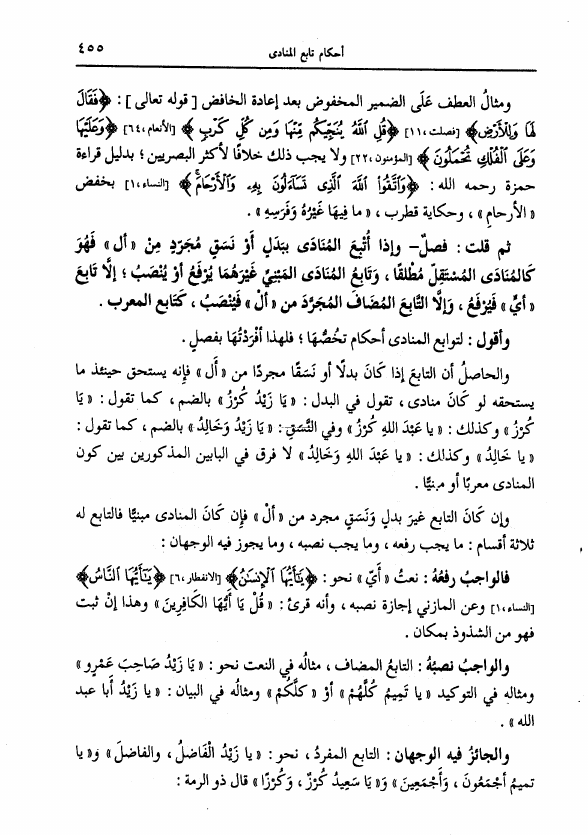 أحكام تابع المنادى
٤٥٥
ومثالُ العطف عَلَى الضمير المخفوض بعد إعادة الخافض [قوله تعالى]: ﴿فَقَالَ
لَهَا وَلِلْأَرْضِ﴾ [فصلت،١١] ﴿قُلِ اللَّهُ يُنَجِّيكُم مِّنْهَا وَمِن كُلِّ كَرْبٍ﴾ [الأنعام،٦٤] ﴿وَعَلَيْهَا
وَعَلَى الْفُلْكِ تُحْمَلُونَ﴾ [المؤمنون،٢٢] ولا يجب ذلك خلافًا لأكثر البصريين؛ بدليل قراءة
حمزة رحمه الله: ﴿وَاتَّقُوا اللَّهَ الَّذِي تَسَاءَلُونَ بِهِ وَالْأَرْحَامِ﴾ [النساء،١] بخفض
«الأرحامِ»، وحكاية قطرب، «ما فِيهَا غَيْرُهُ وَفَرَسِهِ».
ثم قلت: فصلٌ- وإذا أُتْبِعَ المُنَادَى بِبَدَلٍ أَوْ نَسَقٍ مُجَرَّدٍ مِنْ «أل» فَهُوَ
كَالمُنَادَى المُسْتَقِلِّ مُطْلَقًا، وَتَابِعُ المُنَادَى المَبْنِيِّ غَيْرَهُمَا يُرْفَعُ أَوْ يُنْصَبُ؛ إلَّا تَابِعَ
«أيٍّ» فَيُرْفَعُ، وَإلَّا التَّابِعَ المُضَافَ المُجَرَّدَ من «ألْ» فَيُنْصَبُ، كَتَابِعِ المعرب.
وأقول: لتوابع المنادى أحكام تخُصُّهَا؛ فلهذا أفْرَدْتُهَا بفصلٍ.
والحاصلُ أن التابع إذا كَانَ بدلًا أو نَسَقًا مجردًا من «أل» فإنه يستحق حينئذ ما
يستحقه لو كَانَ منادى، تقول في البدل: «يَا زَيْدُ كُرْزُ» بالضم، كما تقول: «يَا
كُرْزُ» وكذلك: «يا عَبْدَ اللهِ كُرْزُ» وفي النَّسَقِ: «يَا زَيْدُ وَخَالِدُ» بالضم، كما تقول:
«يا خَالِدُ» وكذلك: «يَا عَبْدَ اللهِ وَخَالِدُ» لا فرق في البابين المذكورين بين كون
المنادى معربًا أو مبنيًّا.
وإن كَانَ التابع غيرَ بدلٍ وَنَسَقٍ مجرد من «ألْ» فإن كَانَ المنادى مبنيًّا فالتابع له
ثلاثة أقسام: ما يجب رفعه، وما يجب نصبه، وما يجوز فيه الوجهان:
فالواجب رفعُهُ: نعتُ «أيّ» نحو: ﴿يَا أَيُّهَا الْإِنسَانُ﴾ [الانفطار،٦] ﴿يَا أَيُّهَا النَّاسُ﴾
[النساء،١] وعن المازني إجازة نصبه، وأنه قرئ: «قُلْ يَا أَيُّهَا الكَافِرِينَ» وهذا إنْ ثبت
فهو من الشذوذ بمكان.
والواجبُ نصبُهُ: التابعُ المضاف، مثالُه في النعت نحو: «يَا زَيْدُ صَاحِبَ عَمْرٍو»
ومثاله في التوكيد «يا تَمِيمُ كُلَّهُمْ» أوْ «كلَّكُمْ» ومثالُه في البيان: «يا زَيْدُ أبَا عبد
الله».
والجائزُ فيه الوجهان: التابع المفردُ، نحو: «يا زَيْدُ الْفَاضلُ، والفاضلَ» و«يا
تميمُ أجمَعُونَ، وَأَجْمَعِينَ» وَ«يَا سَعِيدُ كُرْزٌ، وَكُرْزًا» قال ذو الرمة: